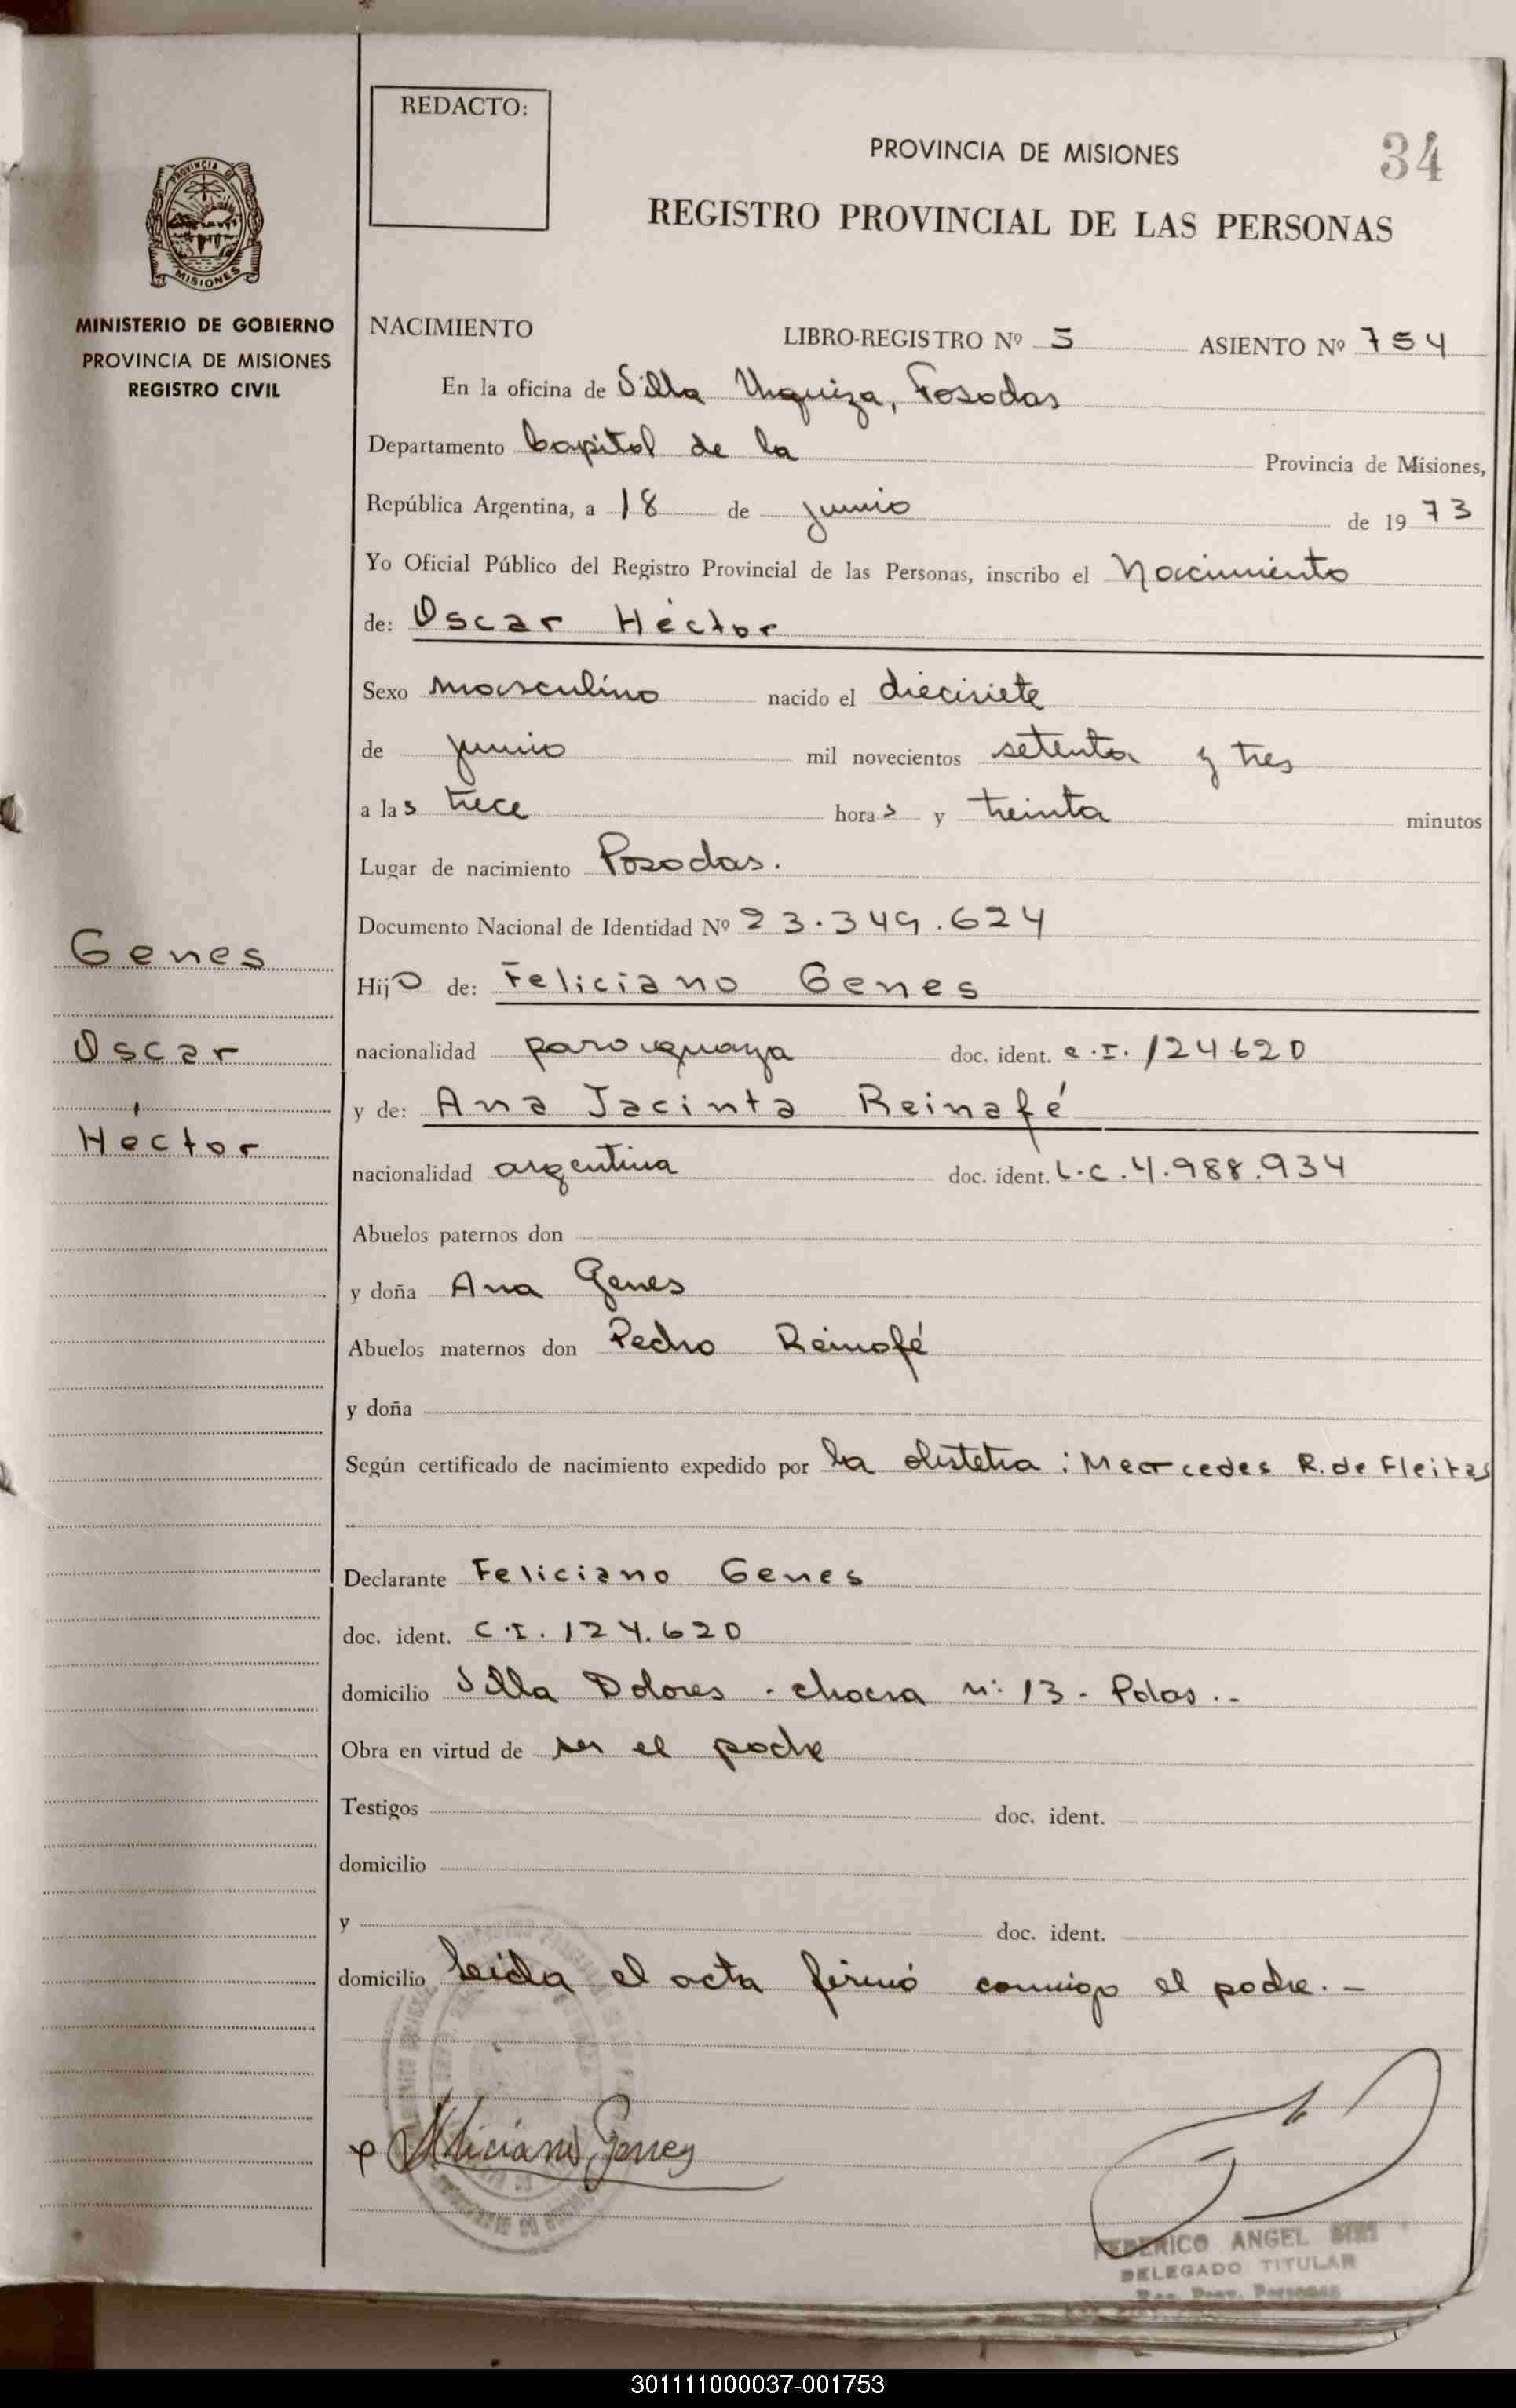 REDACTO:
PROVINCIA DE MISIONES
34
REGISTRO PROVINCIAL DE LAS PERSONAS
PROVINCIA DE
MISIONES
MINISTERIO DE GOBIERNO
PROVINCIA DE MISIONES
REGISTRO CIVIL
NACIMIENTO LIBRO-REGISTRO Nº 5 ASIENTO Nº 754
En la oficina de Villa Urquiza, Posadas
Departamento Capital de la Provincia de Misiones,
República Argentina, a 18 de junio de 1973
Yo Oficial Público del Registro Provincial de las Personas, inscribo el Nacimiento
de: Oscar Héctor
Sexo masculino nacido el diecisiete
de junio mil novecientos setenta y tres
a las trece horas y treinta minutos
Lugar de nacimiento Posadas.
Documento Nacional de Identidad Nº 23.349.624
Genes
Hijo de: Feliciano Genes
Oscar
nacionalidad paraguaya doc. ident. C.I. 124.620
y de: Ana Jacinta Reinafé
Héctor
nacionalidad argentina doc. ident. L.C. 4.988.934
Abuelos paternos don
y doña Ana Genes
Abuelos maternos don Pedro Reinafé
y doña
Según certificado de nacimiento expedido por la obstetra: Mercedes R. de Fleitas
Declarante Feliciano Genes
doc. ident. C.I. 124.620
domicilio Villa Dolores - chacra nº 13 - Pdas.-
Obra en virtud de ser el padre
Testigos doc. ident.
domicilio
y doc. ident.
domicilio Leída el acta firmó conmigo el padre.-
Feliciano Genes
FEDERICO ANGEL
DELEGADO TITULAR
Reg. Prov. Personas
301111000037-001753